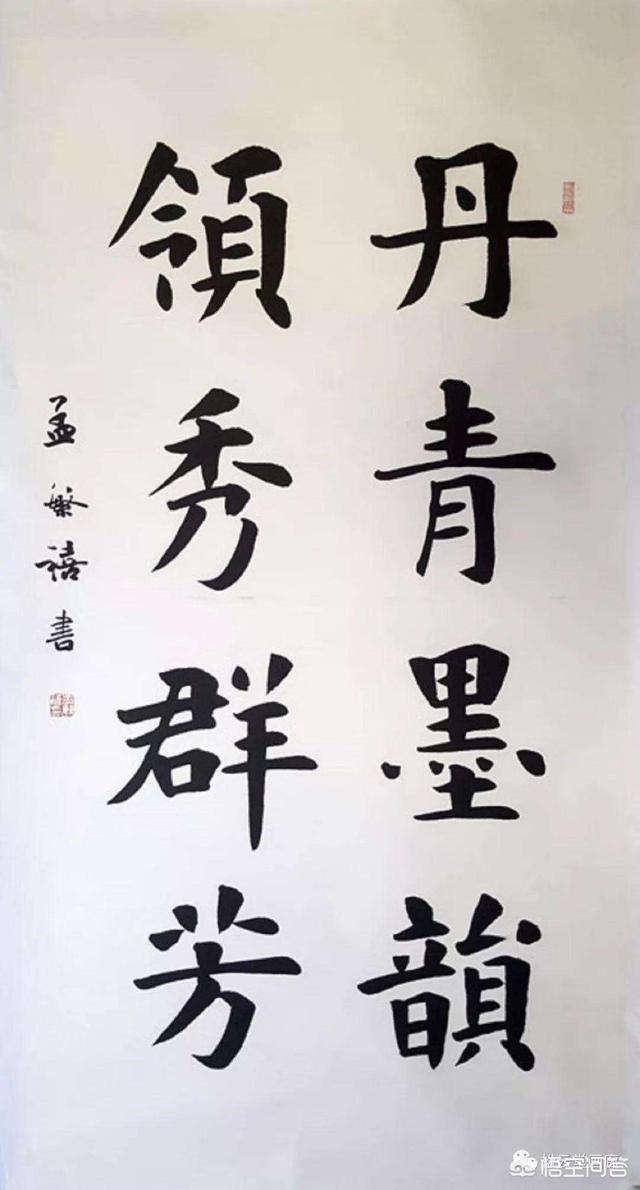 丹青墨韻
領秀群芳
孟繁禧書
悟空问答